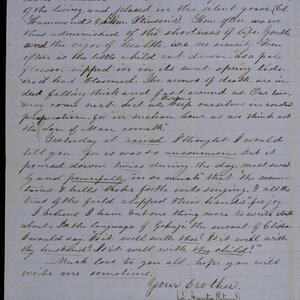 of the living and placed in the silent grave (Col
Hammond's & Wm Stinson's) How often are we
thus admonished of the shortness of life. Youth
and the vigor of health, are no security. How
often is the little child cut down: as a pale
flower nipped in its own spring tide
not bloomed. The arrows of death are in-
deed falling thick and fast around us. Our turn
may come next. Let us keep ourselves in constant
preparation, for in such an hour as we think not the
Son of Man cometh."
Yesterday it rained. I thought I would
tell you for it was so uncommon. But it
poured down twice during the day, most sweet-
ly and powerfully, in so much that "the moun-
tains & hills broke forth into singing, & all the
trees of the field clapped their hands" for joy.
I believe I have but one thing more to write
about. In the language of Gehazi the servant of Elisha
I would say "Is it well with thee? Is it well with
thy husband? Is it well with thy child?"
Much love to you all. hope you will
write me sometime.
Your brother